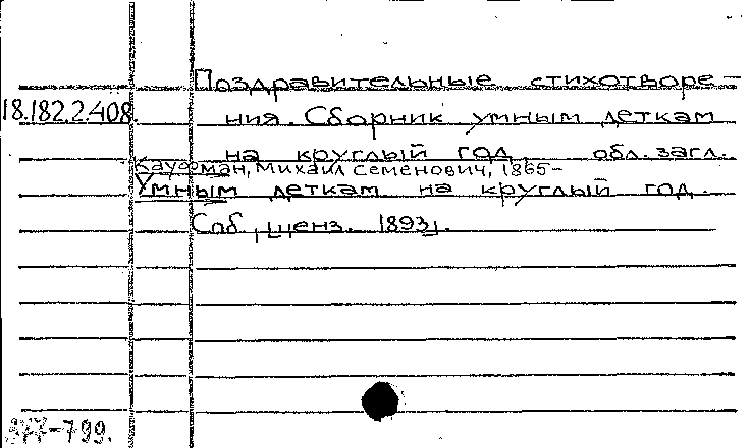 Поздравительные стихотворе-
18.182.2.408. ния. Сборник умным деткам
на круглый год. обл. загл.
Кауфман, Михаил Семенович, 1865-
Умным деткам на круглый год.
Спб., ценз. 1893].
-799.